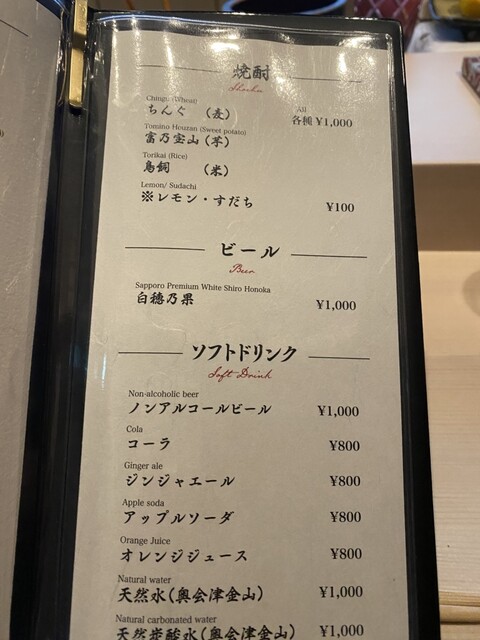 焼酎
Shochu
Chingu (Wheat)
ちんぐ (麦)
All
各種 ¥1,000
Tomino Houzan (Sweet potato)
富乃宝山 (芋)
Torikai (Rice)
鳥飼 (米)
Lemon/ Sudachi
※レモン・すだち ¥100
ビール
Beer
Sapporo Premium White Shiro Honoka
白穂乃果 ¥1,000
ソフトドリンク
Soft Drink
Non-alcoholic beer
ノンアルコールビール ¥1,000
Cola
コーラ ¥800
Ginger ale
ジンジャエール ¥800
Apple soda
アップルソーダ ¥800
Orange Juice
オレンジジュース ¥800
Natural water
天然水(奥会津金山) ¥1,000
Natural carbonated water
天然炭酸水(奥会津金山) ¥1,000